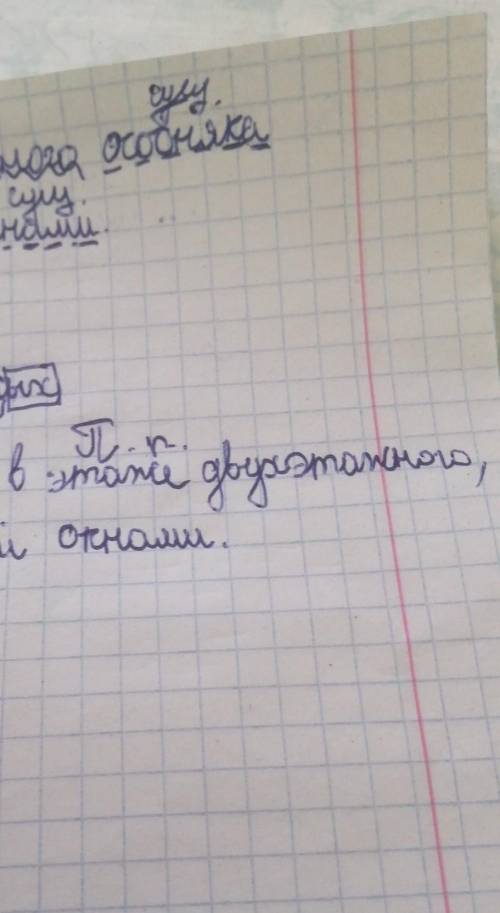 сущ.
ного особняка
сущ.
нами.
ых
П. п.
в этаже двухэтажного,
и окнами.